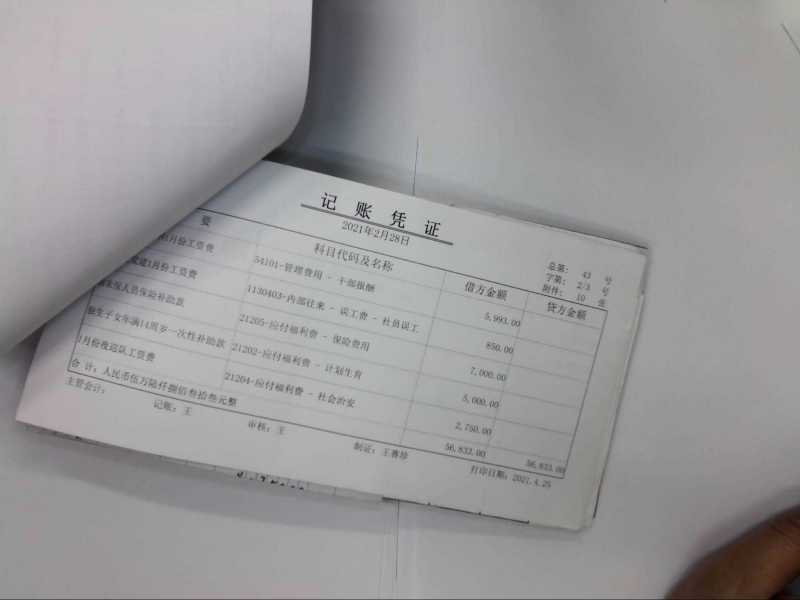 记 账 凭 证
2021年2月28日
总第: 43 号
字第: 2/3 号
附件: 10 张
要 科目代码及名称 借方金额 贷方金额
月份工资费 54101-管理费用 - 干部报酬 5,993.00
1月份工资费 1130403-内部往来 - 误工费 - 社员误工 850.00
保人员保险补助款 21205-应付福利费 - 保险费用 7,000.00
生子女年满14周岁一次性补助款 21202-应付福利费 - 计划生育 5,000.00
1月份夜巡队工资费 21204-应付福利费 - 社会治安 2,750.00
合 计: 人民币伍万陆仟捌佰叁拾叁元整 56,833.00 56,833.00
主管会计: 记账: 王 审核: 王 制证: 王春珍 打印日期: 2021.4.25